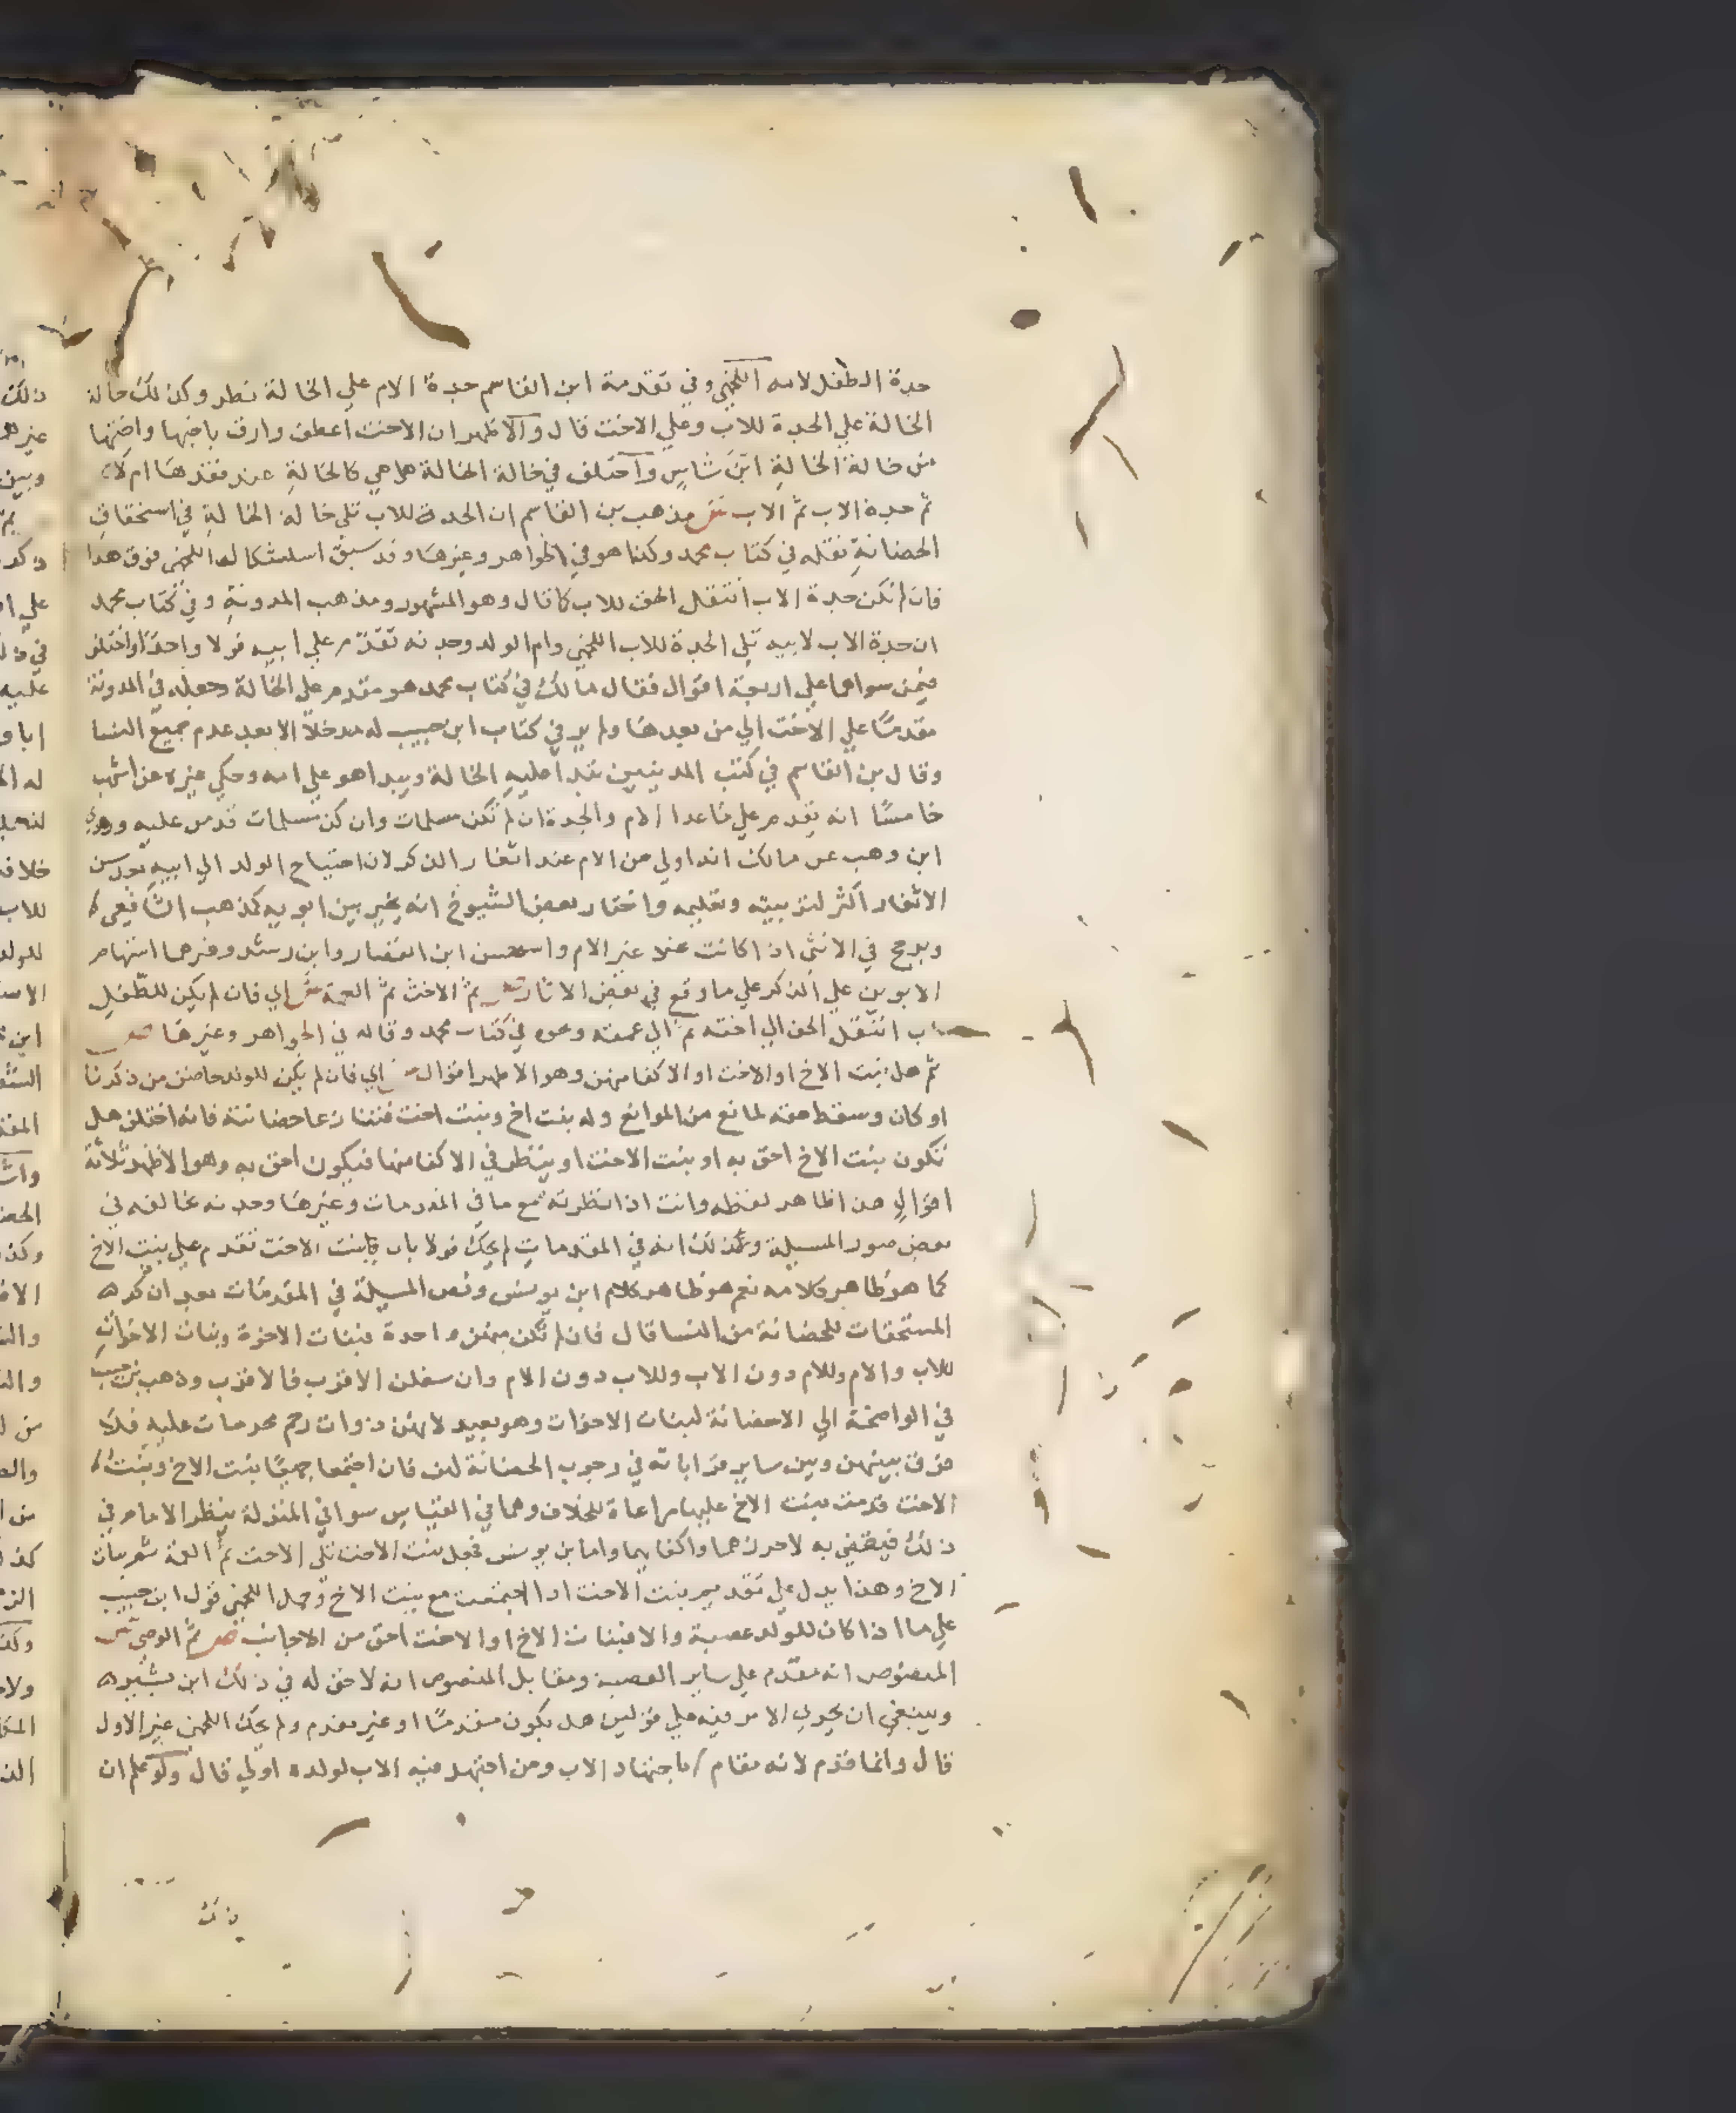 جدة الطفل لامه اللخمي وفي تقدمة ابن القاسم جدة الام علي الخالة نظر وكذلك خالة
الخالة علي الجدة للاب وعلي الاخت قال والاظهر ان الاخت اعطف وارف باخيها واختها
من خالة الخالة ابن شاس واختلف في خالة الخالة هل هي كالخالة عند فقدها ام لا
ثم جدة الاب ثم الاب ش مذهب بن القاسم ان الجدة للاب تلي خالة الخالة في استحقاق
الحضانة نقله في كتاب محمد وكذا هو في الجواهر وغيرها وقد سبق استشكال اللخمي فوق هذا
فان لم تكن جدة الاب انتقل الحق للاب كما قال وهو المشهور ومذهب المدونة وفي كتاب محمد
ان جدة الاب لابيه تلي الجدة للاب اللخمي وام الولد وجدته تقدم علي ابيه قولا واحدا واختلف
فيمن سواهما علي اربعة اقوال فقال مالك في كتاب محمد هو مقدم علي الخالة وجعله في المدونة
مقدما علي الاخت الي من بعدها ولم ير في كتاب ابن حبيب له مدخلا الا بعد عدم جميع النسا
وقال بن القاسم في كتب المدنيين تبدا عليه الخالة ويبدا هو علي امه وحكي غيره عن اشهب
خامسا انه يقدم علي ما عدا الام والجدة ان لم تكن مسلمات وان كن مسلمات قدمن عليه وروي
ابن وهب عن مالك انه اولي من الام عند اثغار الذكر لان احتياج الولد الي ابيه بعد سن
الاثغار اكثر لتربيته وتعليمه واختار بعض الشيوخ انه يخير بين ابويه كمذهب الشافعي
ويرجح في الانثي اذا كانت عند غير الام واستحسن ابن القصار وابن رشد وغيرهما استهام
الابوين علي الذكر علي ما وقع في بعض الاثار ص ثم الاخت ثم العمة ش اي فان لم يكن للطفل
اب انتقل الحق الي اخته ثم الي عمته ونحوه في كتاب محمد وقاله في الجواهر وغيرها ص
ثم هل بنت الاخ او الاخت او الاكفا منهن وهو الاظهر اقوال ش اي فان لم يكن للولد حاضن من ذكرنا
او كان وسقط حقه لمانع من الموانع وله بنت اخ وبنت اخت فتنازعا حضانته فانه اختلف هل
تكون بنت الاخ احق به او بنت الاخت او ينظر في الاكفا منهما فيكون احق به وهو الاظهر ثلاثة
اقوال هذا ظاهر لفظه وانت اذا نظرته مع ما في المقدمات وغيرها وجدته مخالفه في
بعض صور المسيلة وذلك انه في المقدمات لم يحك قولا بان بنت الاخت تقدم علي بنت الاخ
كما هو ظاهر كلامه نعم هو ظاهر كلام ابن يونس ونص المسيلة في المقدمات بعد ان ذكره
المستحقات للحضانة من النسا قال فان لم تكن منهن واحدة فبنات الاخوة وبنات الاخوات
للاب والام وللام دون الاب وللاب دون الام وان سفلن الاقرب فالاقرب وذهب بن حبيب
في الواضحة الي الاحضانة لبنات الاخوات وهو بعيد لانهن ذوات رحم محرمات عليه فلا
فرق بينهن وبين ساير قراباته في وجوب الحضانة لهن فان اجتمعا جميعا بنت الاخ وبنت
الاخت قدمت بنت الاخ عليها مراعاة للخلاف وهما في القياس سوا في المنزلة ينظر الامام في
ذلك فيقضي به لاحرزهما واكفاهما واما بن يونس فجعل بنت الاخت تلي الاخت ثم العمة ثم بنات
الاخ وهذا يدل علي تقديم بنت الاخت اذا اجتمعت مع بنت الاخ وحمل اللخمي قول ابن حبيب
علي ما اذا كان للولد عصبة والا فبنات الاخ او الاخت احق من الاجانب ص ثم الوصي ش
المنصوص انه مقدم علي ساير العصبة ومقابل المنصوص انه لا حق له في ذلك ابن بشير
وينبغي ان يجري الامر فيه علي قولين هل يكون مقدما او غير مقدم ولم يحك اللخمي غير الاول
قال وانما قدم لانه مقام باجتهاد الاب ومن اجتهد فيه الاب لولده اولي قال ولو علم ان
ذلك